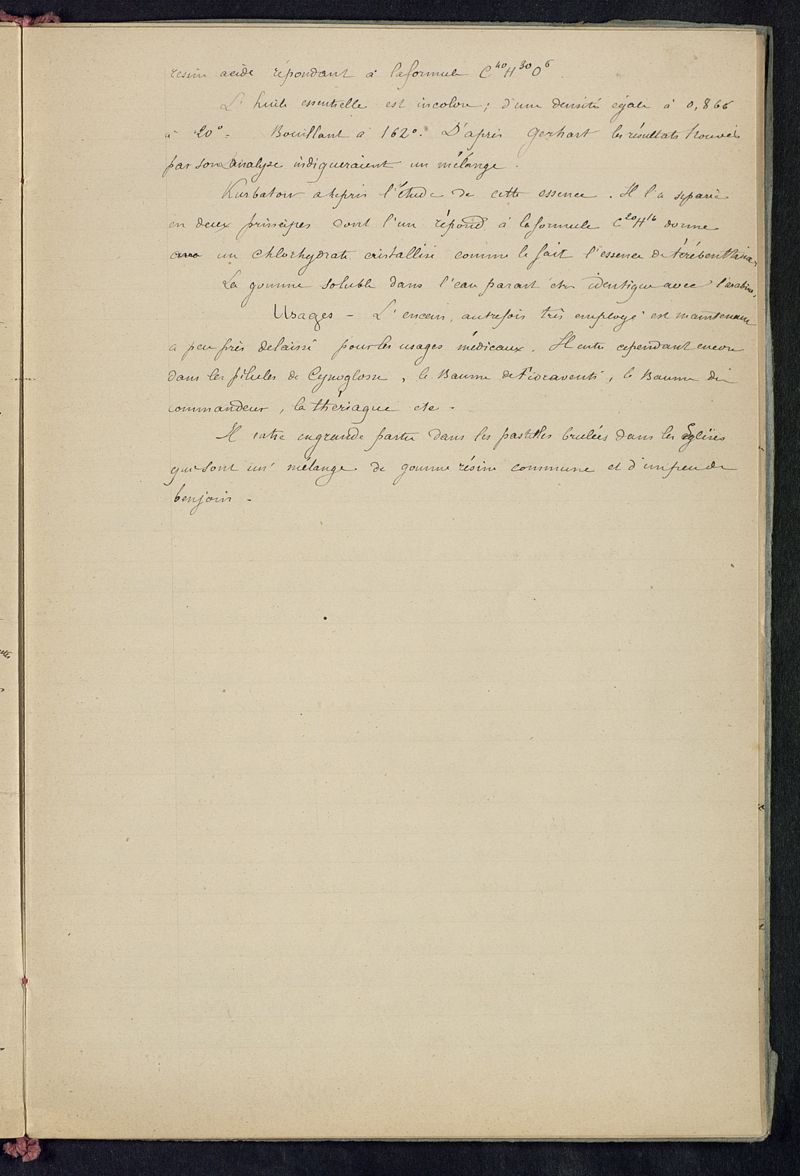 resine acide répondant à la formule C⁴⁰H³⁰O⁶.
L'huile essentielle est incolore; d'une densité égale à 0,866
à 20°. Bouillant à 162°. D'après Gerhart les résultats trouvés
par son analyse indiqueraient un mélange.
Kurbatow a repris l'étude de cette essence. Il l'a separée
en deux principes dont l'un répond à la formule C²⁰H¹⁶ donne
un chlorhydrate cristallisé comme le fait l'essence de térébenthine.
La gomme soluble dans l'eau parait être identique avec l'arabine.
Usages - L'encens, autrefois très employé est maintenant
a peu près delaissé pour les usages médicaux. Il entre cependant encore
dans les pilules de Cynoglosse, le Baume de Fioraventi, le Baume du
commandeur, la thériaque etc.
Il entre en grande partie dans les pastilles brulées dans les Eglises
qui sont un mélange de gomme résine commune et d'un peu de
benjoin.